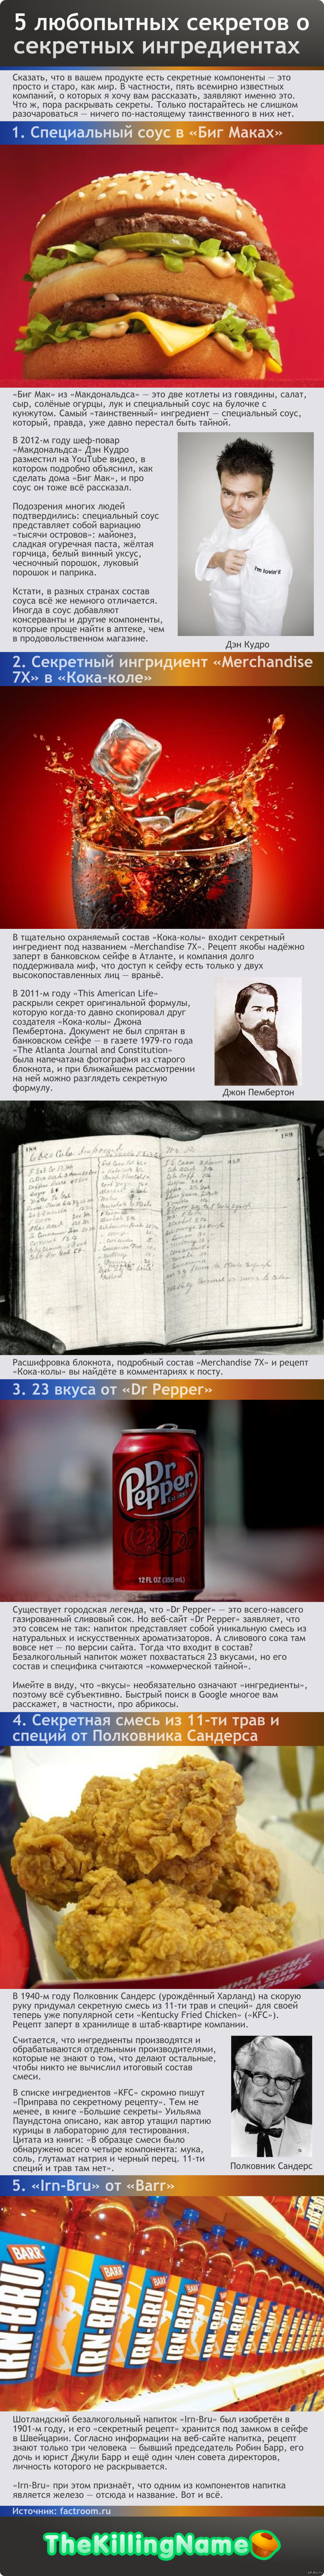 5 любопытных секретов о
секретных ингредиентах
Сказать, что в вашем продукте есть секретные компоненты — это
просто и старо, как мир. В частности, пять всемирно известных
компаний, о которых я хочу вам рассказать, заявляют именно это.
Что ж, пора раскрывать секреты. Только постарайтесь не слишком
разочароваться — ничего по-настоящему таинственного в них нет.
1. Специальный соус в «Биг Маках»
«Биг Мак» из «Макдональдса» — это две котлеты из говядины, салат,
сыр, солёные огурцы, лук и специальный соус на булочке с
кунжутом. Самый «таинственный» ингредиент — специальный соус,
который, правда, уже давно перестал быть тайной.
В 2012-м году шеф-повар
«Макдональдса» Дэн Кудро
разместил на YouTube видео, в
котором подробно объяснил, как
сделать дома «Биг Мак», и про
соус он тоже всё рассказал.
Подозрения многих людей
подтвердились: специальный соус
представляет собой вариацию
«тысячи островов»: майонез,
сладкая огуречная паста, жёлтая
горчица, белый винный уксус,
чесночный порошок, луковый
порошок и паприка.
Кстати, в разных странах состав
соуса всё же немного отличается.
Иногда в соус добавляют
консерванты и другие компоненты,
которые проще найти в аптеке, чем
в продовольственном магазине.
i'm lovin'it
Дэн Кудро
2. Секретный ингридиент «Merchandise
7X» в «Кока-коле»
В тщательно охраняемый состав «Кока-колы» входит секретный
ингредиент под названием «Merchandise 7X». Рецепт якобы надёжно
заперт в банковском сейфе в Атланте, и компания долго
поддерживала миф, что доступ к сейфу есть только у двух
высокопоставленных лиц — враньё.
В 2011-м году «This American Life»
раскрыли секрет оригинальной формулы,
которую когда-то давно скопировал друг
создателя «Кока-колы» Джона
Пембертона. Документ не был спрятан в
банковском сейфе — в газете 1979-го года
«The Atlanta Journal and Constitution»
была напечатана фотография из старого
блокнота, и при ближайшем рассмотрении
на ней можно разглядеть секретную
формулу.
Джон Пембертон
Расшифровка блокнота, подробный состав «Merchandise 7X» и рецепт
«Кока-колы» вы найдёте в комментариях к посту.
3. 23 вкуса от «Dr Pepper»
Dr
Pepper
23
12 FL OZ (355 mL)
Существует городская легенда, что «Dr Pepper» — это всего-навсего
газированный сливовый сок. Но веб-сайт «Dr Pepper» заявляет, что
это совсем не так: напиток представляет собой уникальную смесь из
натуральных и искусственных ароматизаторов. А сливового сока там
вовсе нет — по версии сайта. Тогда что входит в состав?
Безалкогольный напиток может похвастаться 23 вкусами, но его
состав и специфика считаются «коммерческой тайной».
Имейте в виду, что «вкусы» необязательно означают «ингредиенты»,
поэтому всё субъективно. Быстрый поиск в Google многое вам
расскажет, в частности, про абрикосы.
4. Секретная смесь из 11-ти трав и
специй от Полковника Сандерса
В 1940-м году Полковник Сандерс (урождённый Харланд) на скорую
руку придумал секретную смесь из 11-ти трав и специй» для своей
теперь уже популярной сети «Kentucky Fried Chicken» («KFC»).
Рецепт заперт в хранилище в штаб-квартире компании.
Считается, что ингредиенты производятся и
обрабатываются отдельными производителями,
которые не знают о том, что делают остальные,
чтобы никто не вычислил итоговый состав
смеси.
В списке ингредиентов «KFC» скромно пишут
«Приправа по секретному рецепту». Тем не
менее, в книге «Большие секреты» Уильяма
Паундстона описано, как автор утащил партию
курицы в лабораторию для тестирования.
Цитата из книги: «В образце смеси было
обнаружено всего четыре компонента: мука,
соль, глутамат натрия и черный перец. 11-ти
специй и трав там нет».
Полковник Сандерс
5. «Irn-Bru» от «Barr»
BARR
IRN-BRU
BARR
IRN-BRU
BARR
IRN-BRU
Шотландский безалкогольный напиток «Irn-Bru» был изобретён в
1901-м году, и его «секретный рецепт» хранится под замком в сейфе
в Швейцарии. Согласно информации на веб-сайте напитка, рецепт
знают только три человека — бывший председатель Робин Барр, его
дочь и юрист Джули Барр и ещё один член совета директоров,
личность которого не раскрывается.
«Irn-Bru» при этом признаёт, что одним из компонентов напитка
является железо — отсюда и название. Вот и всё.
Источник: factroom.ru
TheKillingName